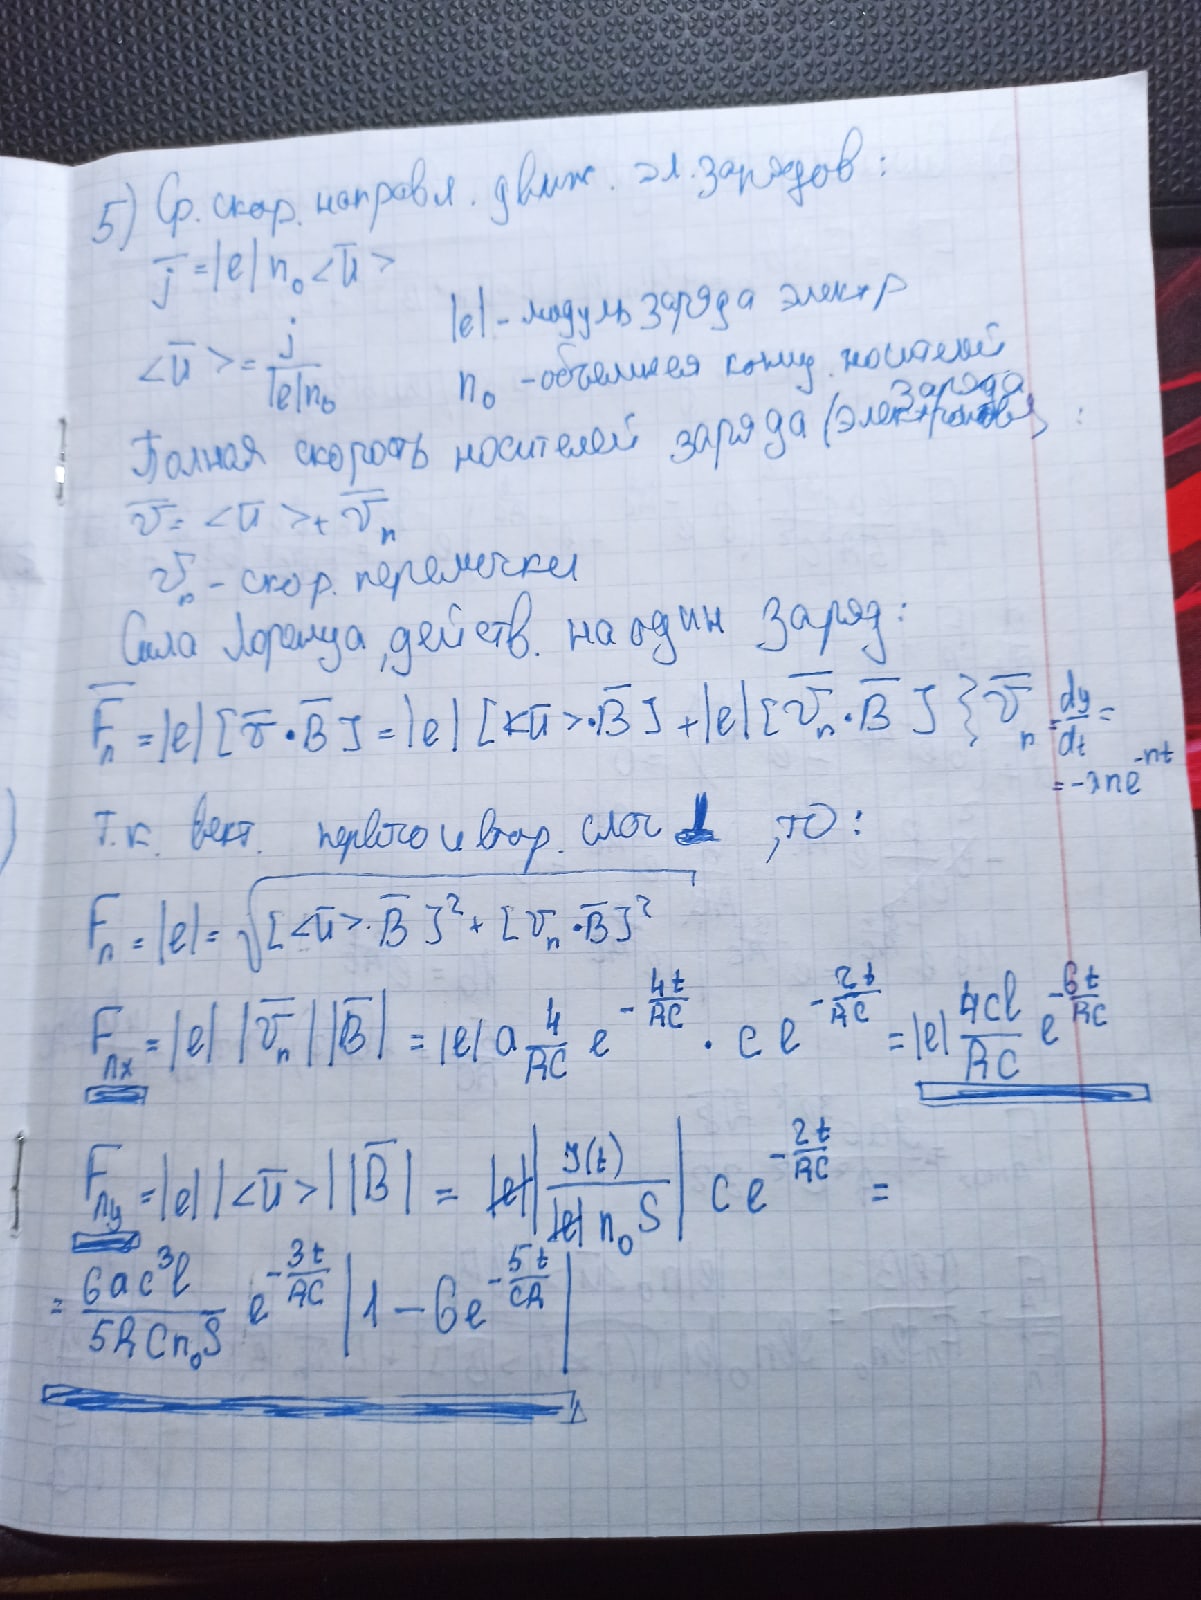 5) Ср. скор. направл. движ. эл. зарядов:
j̅ = |e| n₀ <u̅>
|e| - модуль заряда электр
<u̅> = j / |e|n₀
n₀ - объемная конц. носителей
заряда
Полная скорость носителей заряда (электронов) :
v̅ = <u̅> + v̅ₙ
v̅ₙ - скор. перемычки
Сила Лоренца, действ. на один заряд:
F̅ₙ = |e| [v̅ · B̅] = |e| [<u̅> · B̅] + |e| [v̅ₙ · B̅] } v̅ₙ = dy/dt =
= -λne^(-nt)
Т.к. вект. первого и втор. слаг ⊥, то:
Fₙ = |e| = √([<u̅> · B̅]² + [vₙ · B̅]²)
Fₙₓ = |e| |v̅ₙ| |B̅| = |e| a 4/RC e^(-4t/RC) · c e^(-2t/RC) = |e| 4cl/RC e^(-6t/RC)
Fₙᵧ = |e| |<u̅>| |B̅| = |e| |J(t) / |e| n₀ S| c e^(-2t/RC) =
= 6ac³l / 5RCn₀S e^(-3t/RC) |1 - 6e^(-5t/CR)|